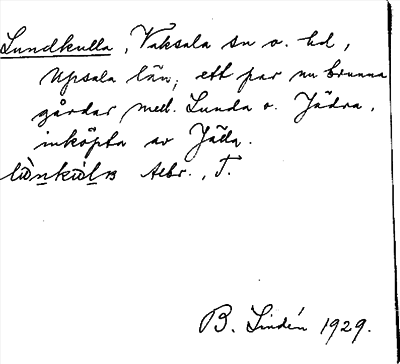 Lundkulla, Vaksala sn o. hd,
Upsala län; ett par nu brunna
gårdar med. Lunda o. Jädra,
inköpta av Jälla.
Aebr., T.
B. Lindén 1929.